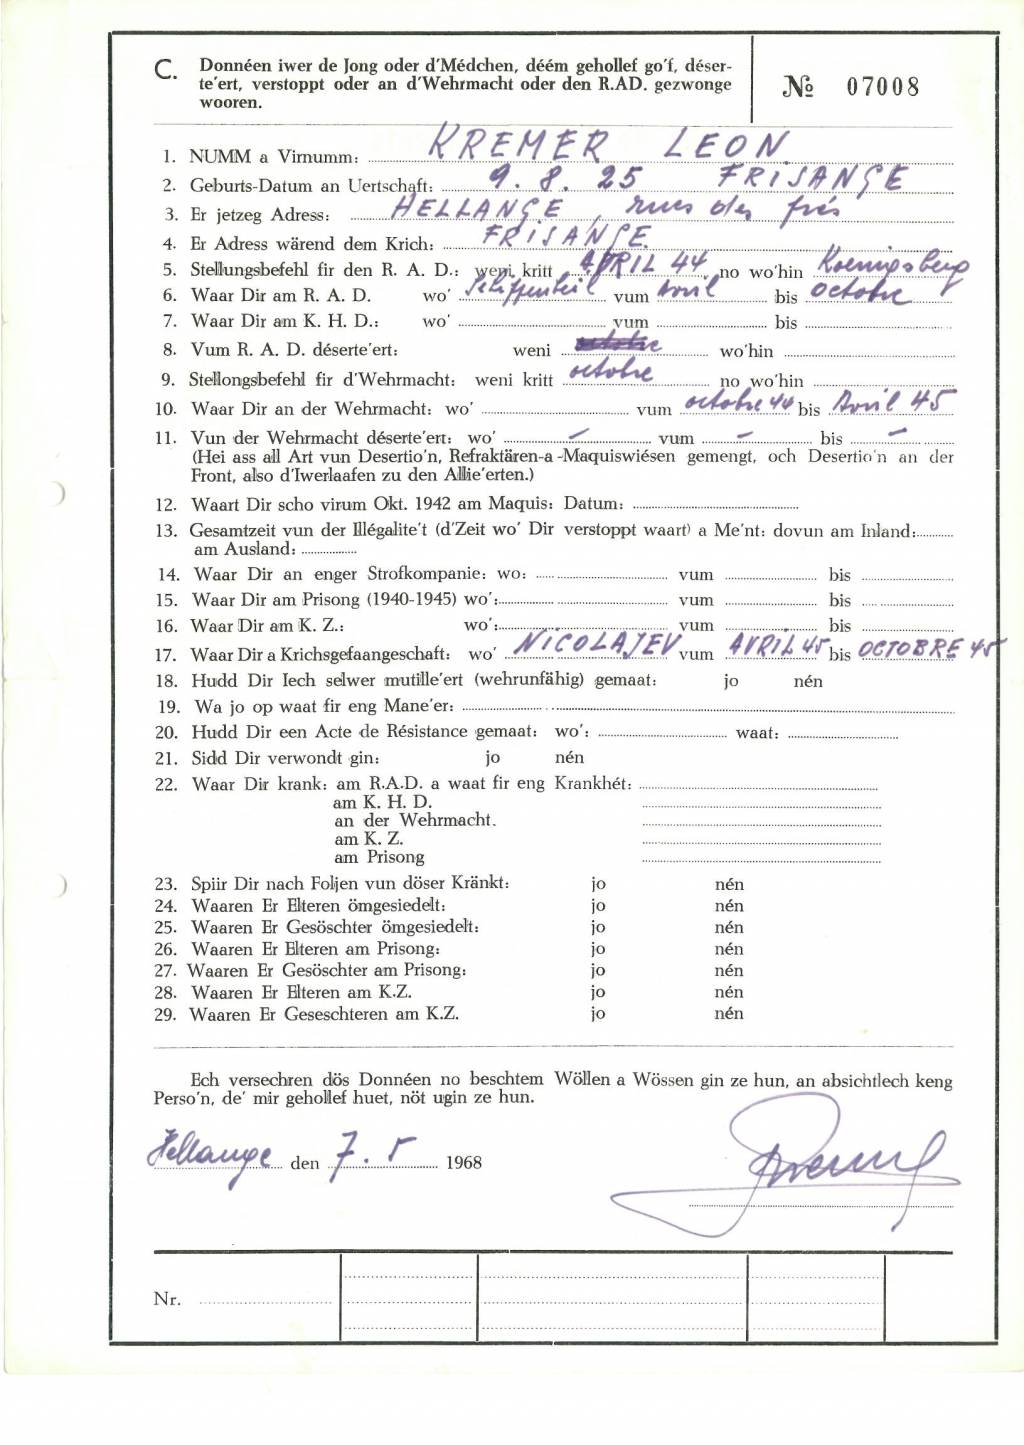 C. Donnéen iwer de Jong oder d'Médchen, déém gehollef go'f, déser-
te'ert, verstoppt oder an d'Wehrmacht oder den R.AD. gezwonge
wooren.
№ 07008
1. NUMM a Virnumm: KREMER LEON
2. Geburts-Datum an Uertschaft: 9. 8. 25 FRISANGE
3. Er jetzeg Adress: HELLANGE, rue des prés
4. Er Adress wärend dem Krich: FRISANGE
5. Stellungsbefehl fir den R. A. D.: weni kritt APRIL 44 no wo'hin Koenigsberg
6. Waar Dir am R. A. D. wo' Schippenbeil vum Avril bis octobre
7. Waar Dir am K. H. D.: wo' vum bis
8. Vum R. A. D. déserte'ert: weni wo'hin
9. Stellongsbefehl fir d'Wehrmacht: weni kritt octobre no wo'hin
10. Waar Dir an der Wehrmacht: wo' vum octobre 44 bis Avril 45
11. Vun der Wehrmacht déserte'ert: wo' - vum - bis -
(Hei ass all Art vun Desertio'n, Refraktären-a -Maquiswiésen gemengt, och Desertio'n an der
Front, also d'Iwerlaafen zu den Allie'erten.)
12. Waart Dir scho virum Okt. 1942 am Maquis: Datum:
13. Gesamtzeit vun der Illégalite't (d'Zeit wo' Dir verstoppt waart) a Me'nt: dovun am Inland:
am Ausland:
14. Waar Dir an enger Strofkompanie: wo: vum bis
15. Waar Dir am Prisong (1940-1945) wo': vum bis
16. Waar Dir am K. Z.: wo': vum bis
17. Waar Dir a Krichsgefaangeschaft: wo' NICOLAJEV vum AVRIL 45 bis OCTOBRE 45
18. Hudd Dir Iech selwer mutille'ert (wehrunfähig) gemaat: jo nén
19. Wa jo op waat fir eng Mane'er:
20. Hudd Dir een Acte de Résistance gemaat: wo': waat:
21. Sidd Dir verwondt gin: jo nén
22. Waar Dir krank: am R.A.D. a waat fir eng Krankhét:
am K. H. D.
an der Wehrmacht.
am K. Z.
am Prisong
23. Spiir Dir nach Foljen vun döser Kränkt: jo nén
24. Waaren Er Elteren ömgesiedelt: jo nén
25. Waaren Er Gesöschter ömgesiedelt: jo nén
26. Waaren Er Elteren am Prisong: jo nén
27. Waaren Er Gesöschter am Prisong: jo nén
28. Waaren Er Elteren am K.Z. jo nén
29. Waaren Er Geseschteren am K.Z. jo nén
Ech versechren dös Donnéen no beschtem Wöllen a Wössen gin ze hun, an absichtlech keng
Perso'n, de' mir gehollef huet, nöt ugin ze hun.
Hellange den 7. 5 1968
Kremer
Nr.